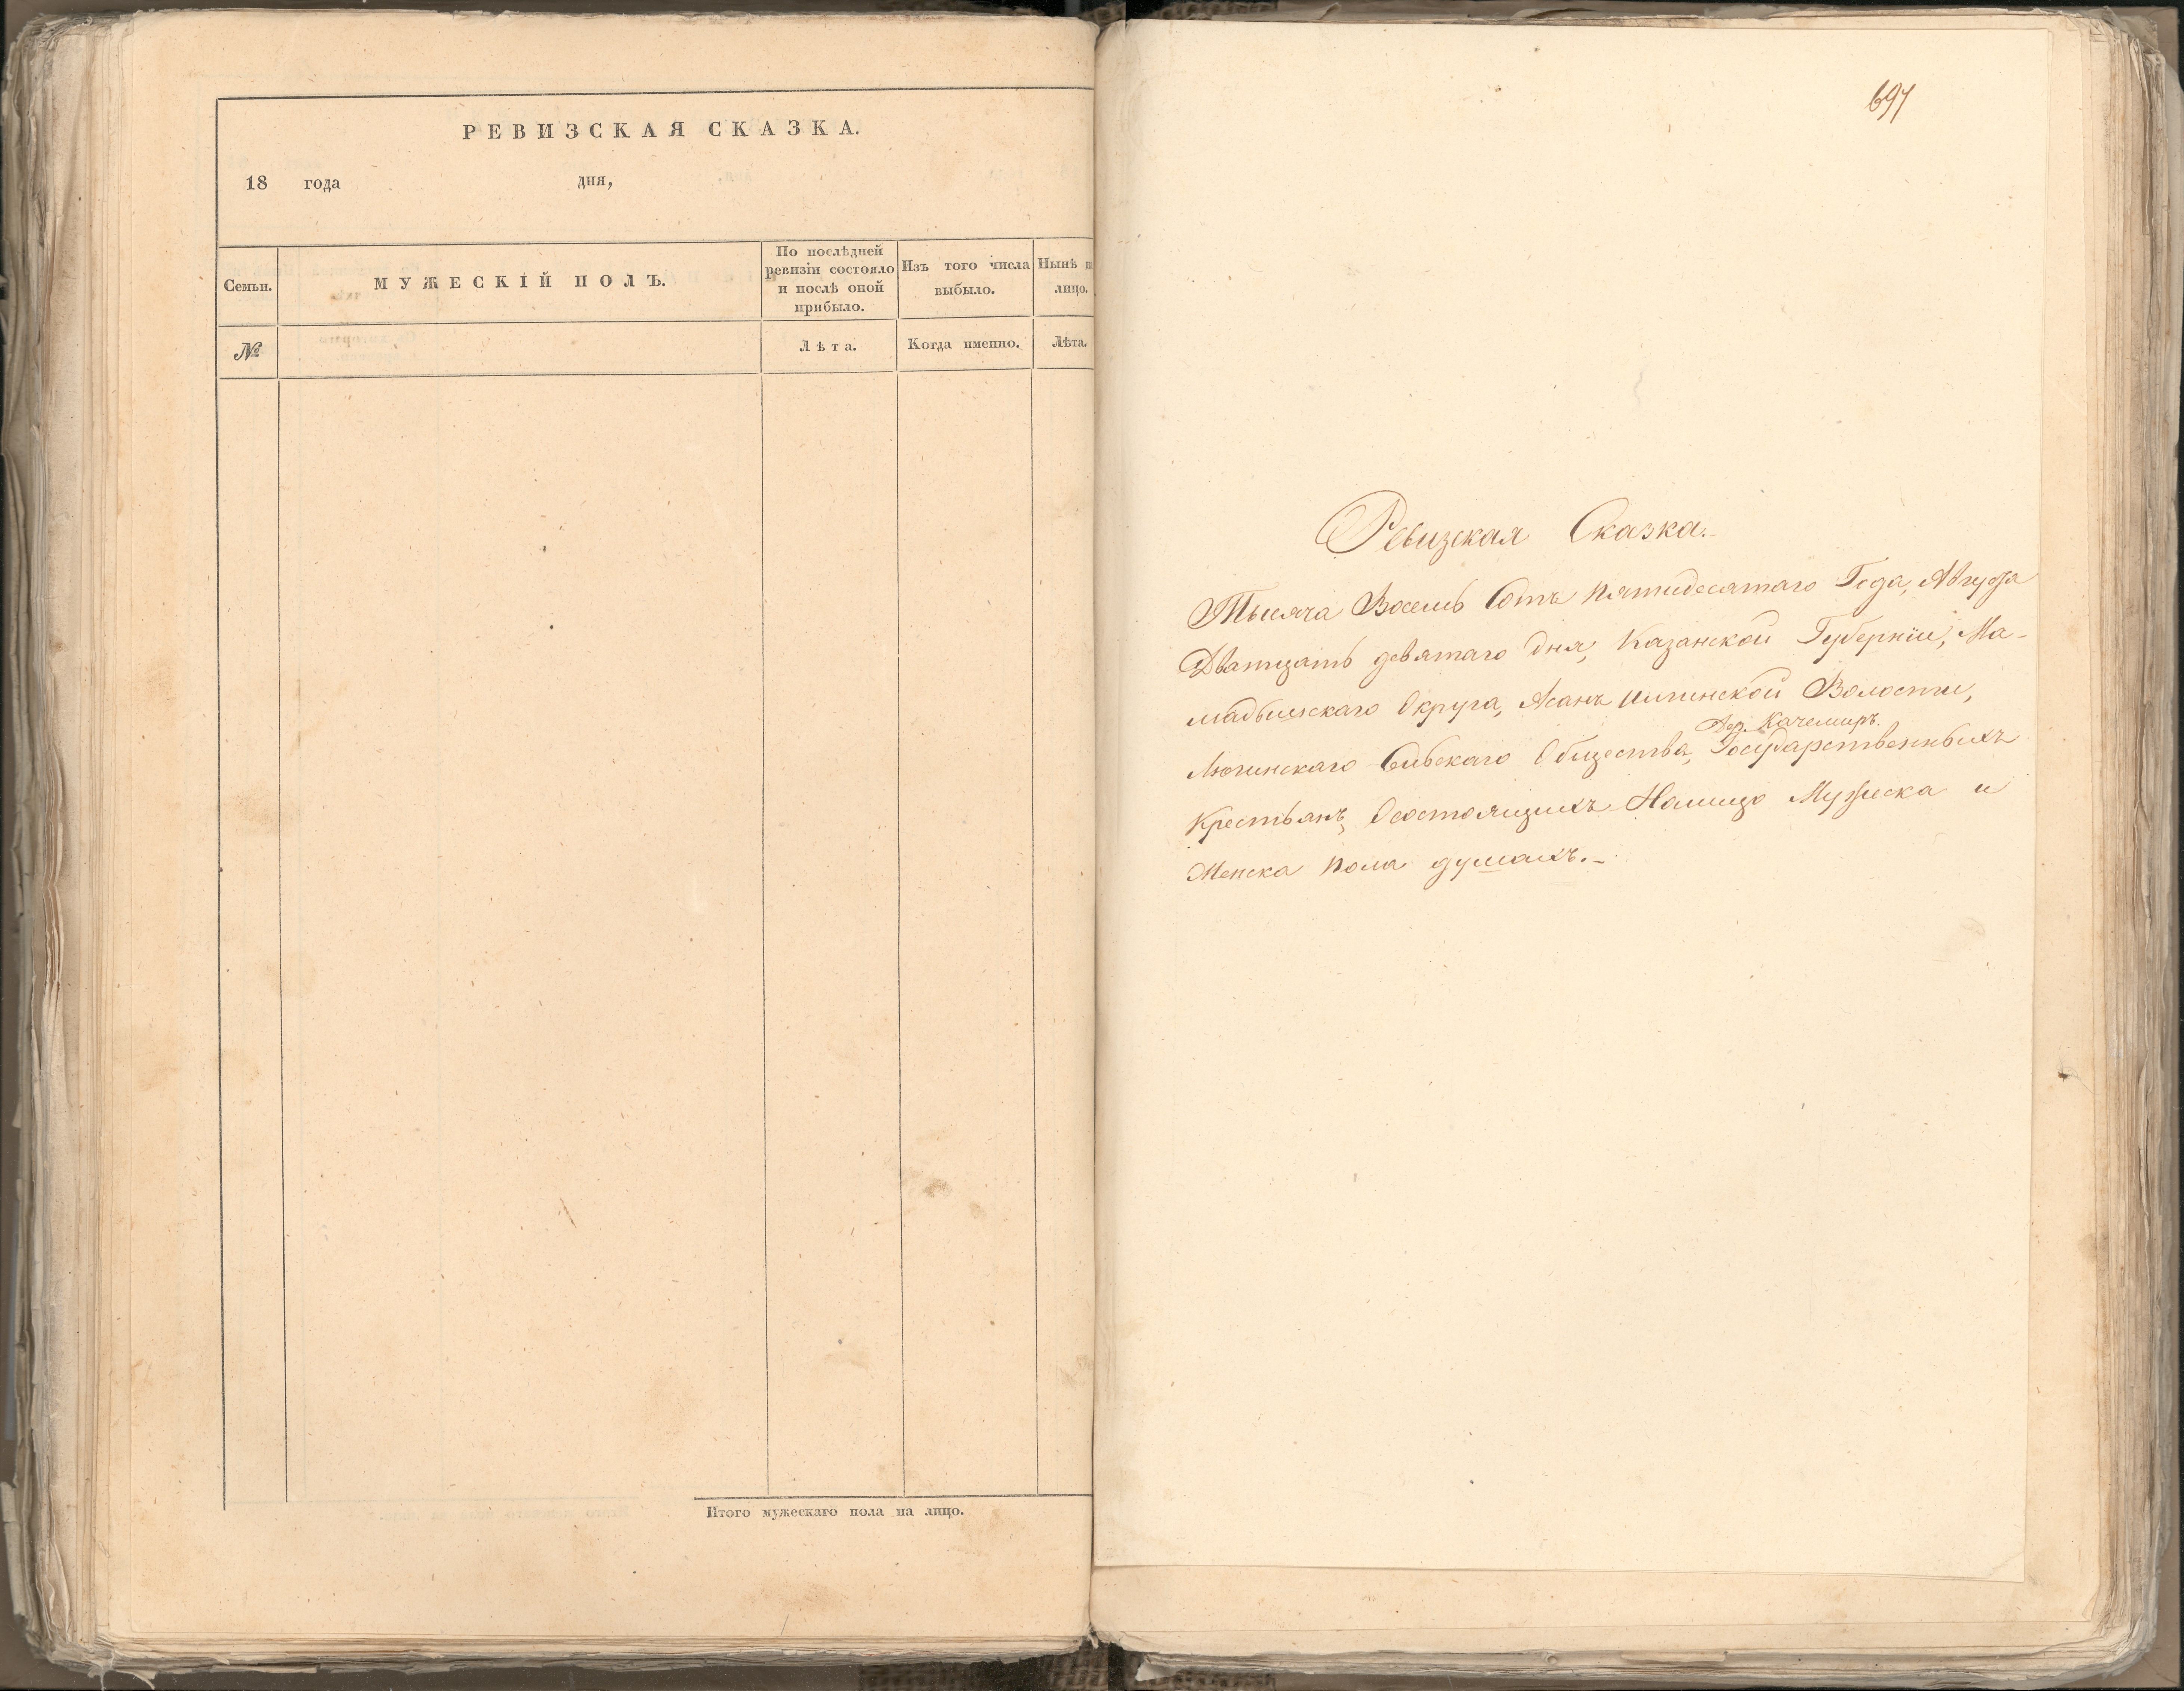 РЕВИЗСКАЯ СКАЗКА.
18 года дня,
Семьи.
МУЖЕСКІЙ ПОЛЪ.
По послѣдней
ревизіи состояло
и послѣ оной
прибыло.
Изъ того числа
выбыло.
Нынѣ на
лицо.
№
Лѣта.
Когда именно.
Лѣта.
Итого мужескаго пола на лицо.
697
Ревизская Сказка.
Тысяча Восемь Сотъ пятидесятаго Года, Августа
Дватцать девятаго дня, Казанской Губерніи, Ма-
мадышскаго Округа, Асанъ Илгинской Волости,
Дер. Качемиръ.
Люгинскаго Сельскаго Общества, Государственныхъ
Крестьянъ, Осостоящихъ Налицо Мужеска и
Женска пола душахъ.